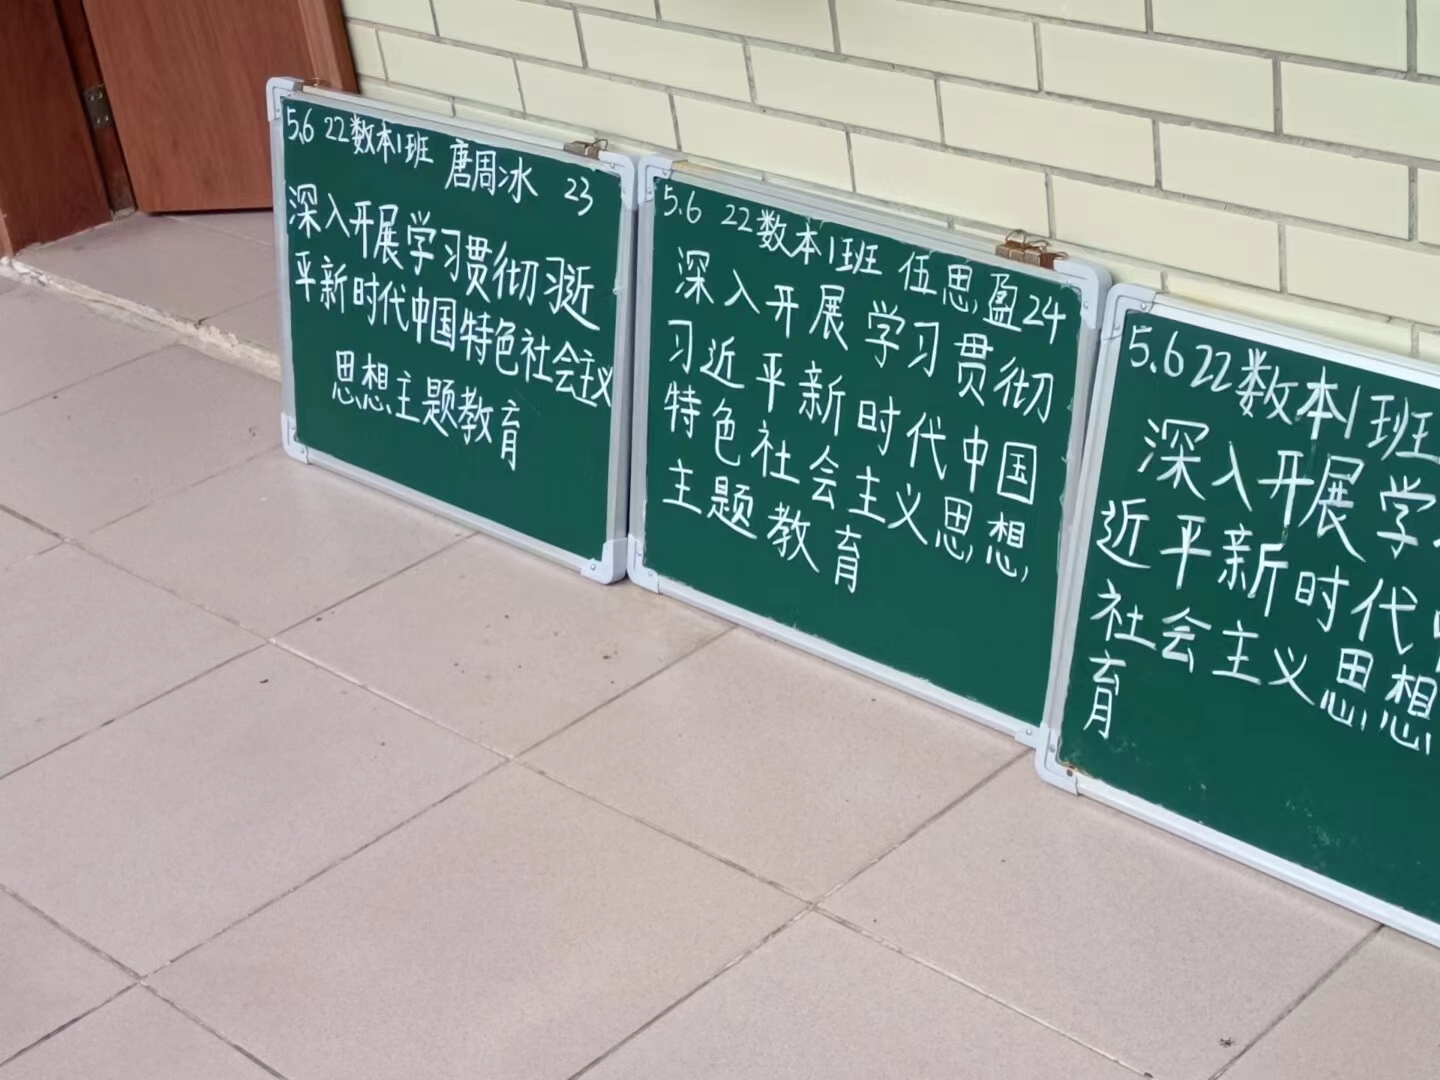 5.6 22数本1班 唐周冰 23
深入开展学习贯彻习近
平新时代中国特色社会主义
思想主题教育
5.6 22数本1班 伍思盈24
深入开展学习贯彻
习近平新时代中国
特色社会主义思想
主题教育
5.6 22数本1班
深入开展学
近平新时代
社会主义思想
育